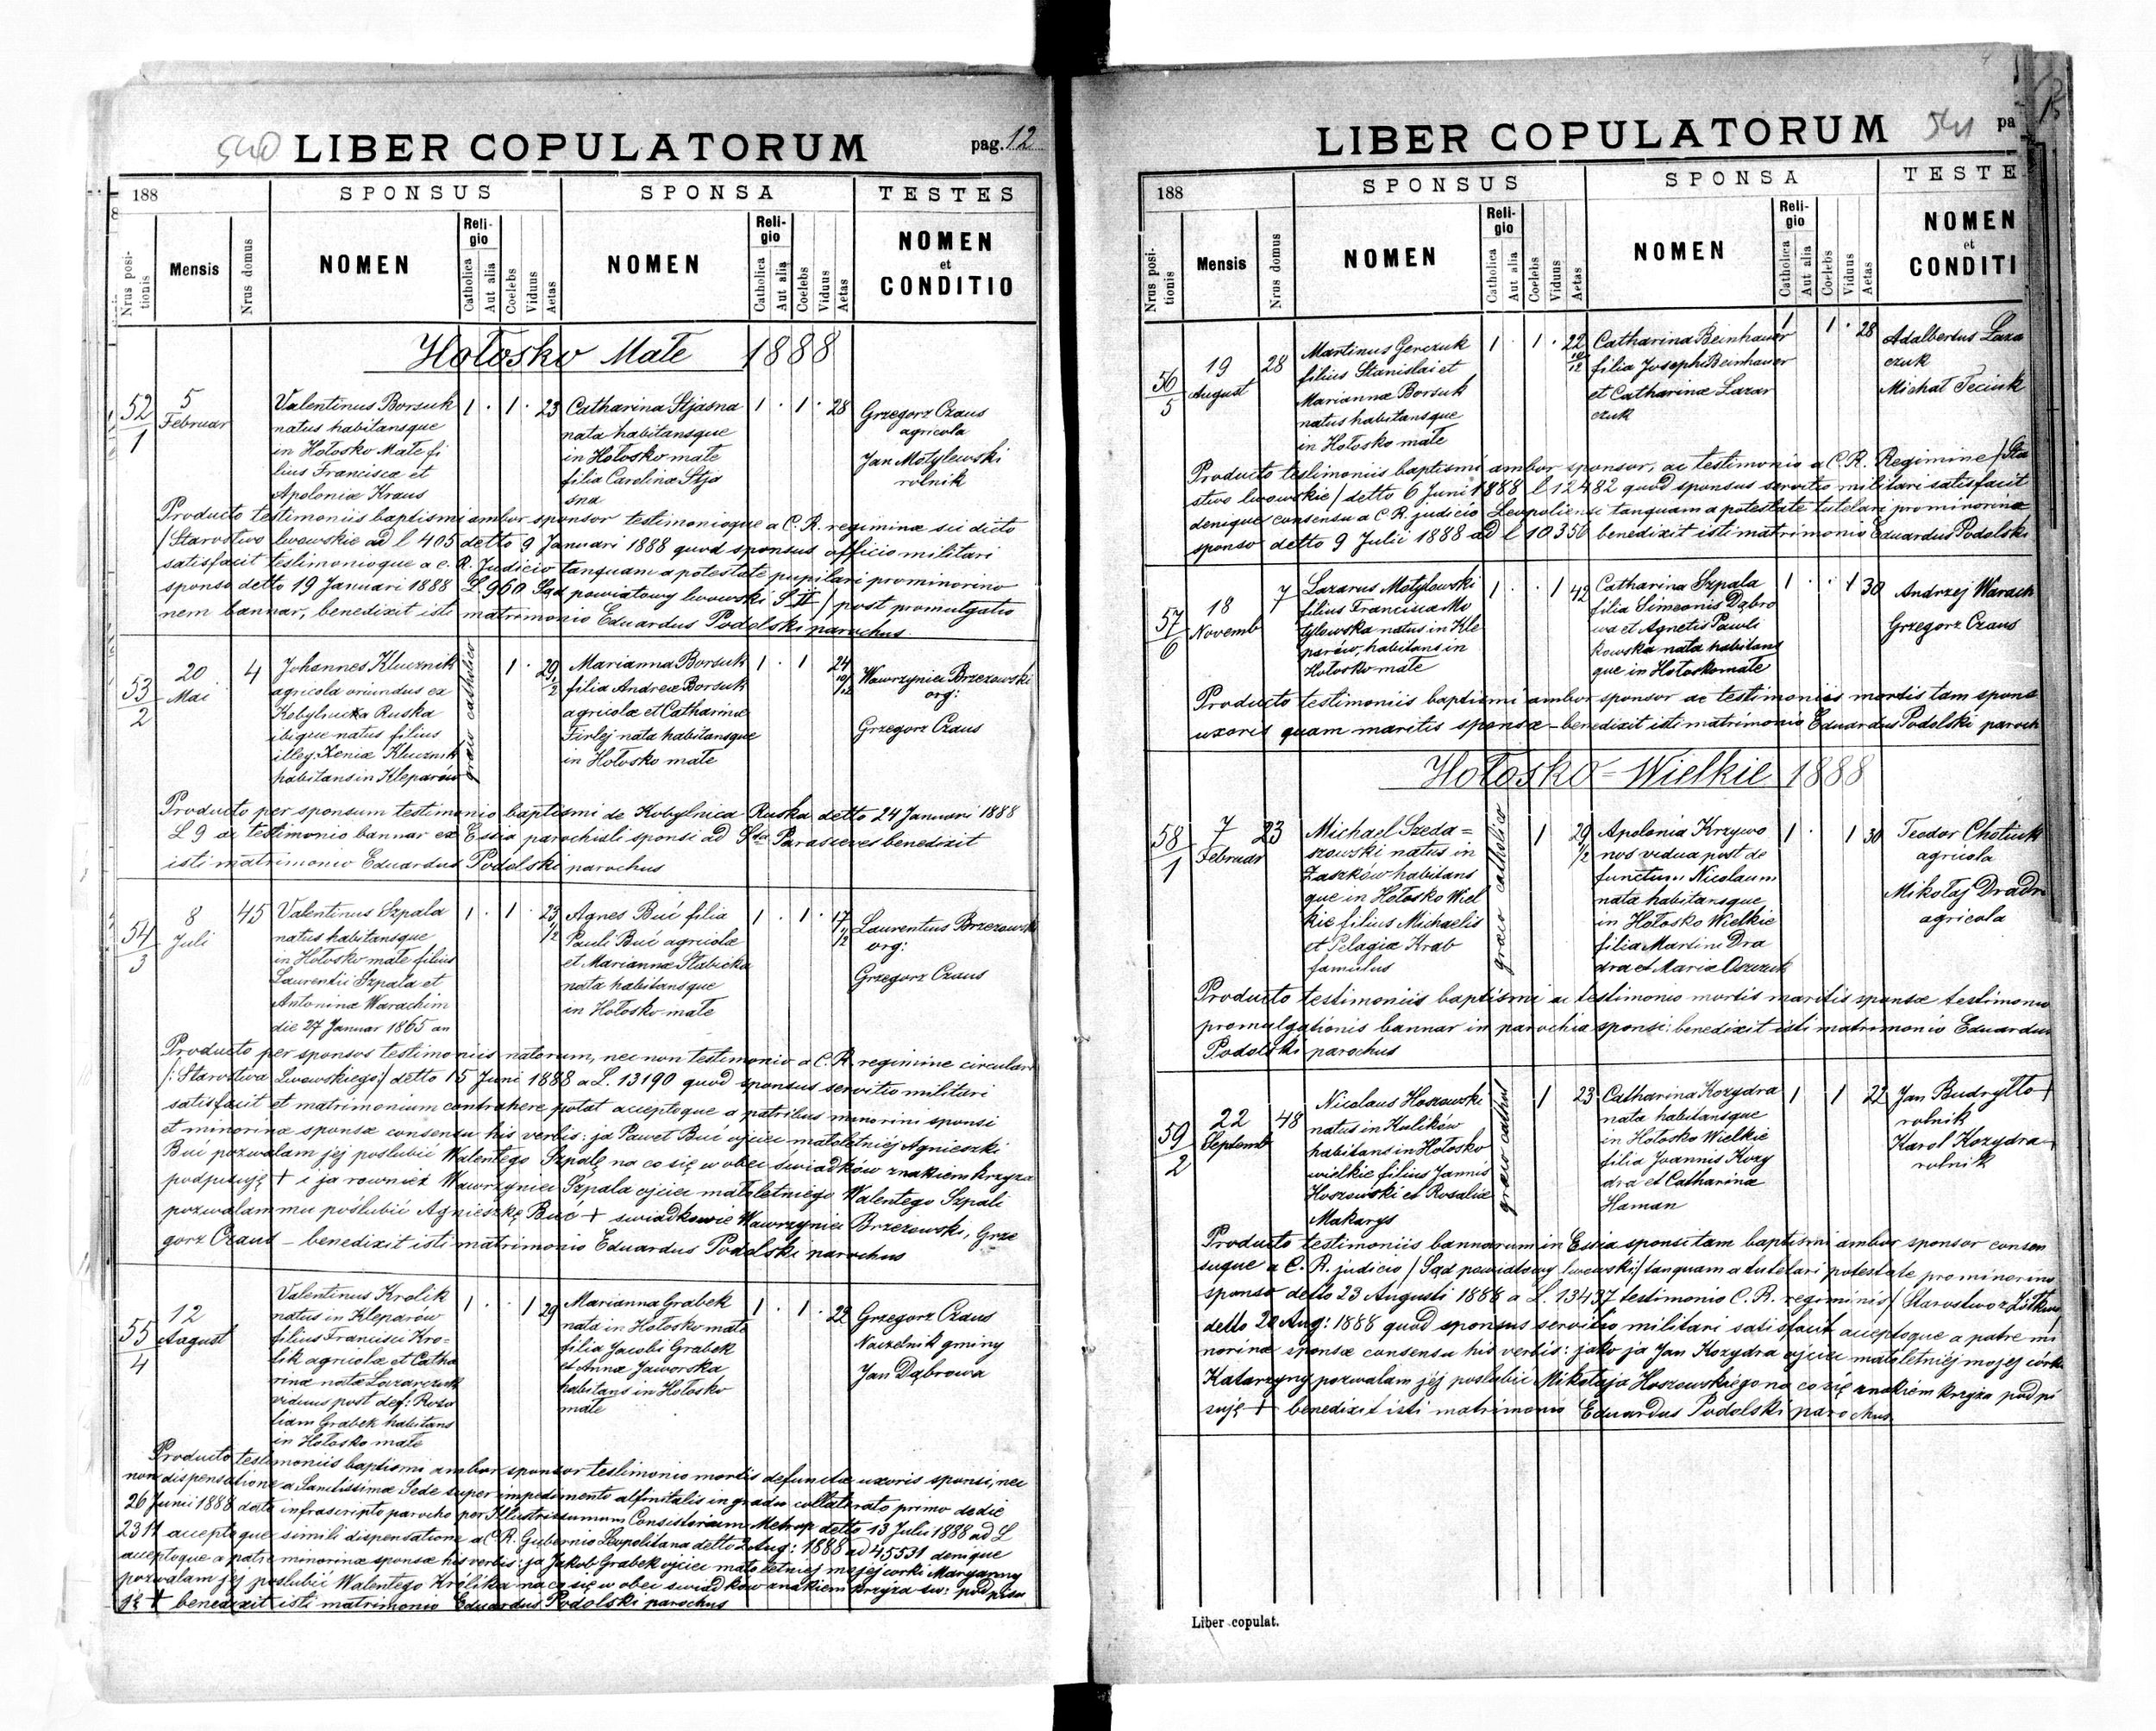 540 LIBER COPULATORUM pag. 12
188 SPONSUS SPONSA TESTES
Nrus positionis Mensis Nrus domus NOMEN Religio Catholica Aut alia Coelebs Viduus Aetas NOMEN Religio Catholica Aut alia Coelebs Viduus Aetas NOMEN et CONDITIO
Hołosko Małe 1888
52/1
5
Februar
Valentinus Borsuk
natus habitansque
in Hołosko Małe fi
lius Francisca et
Apolonia Kraus
1 · 1 · 23
Catharina Stjasna
nata habitansque
in Hołosko małe
filia Carolina Stja
sna
1 · 1 · 28
Grzegorz Czaus
agricola
Jan Motylewski
rolnik
Producto testimoniis baptismi ambor sponsor testimonioque a C. R. regimine sic dicto
/Starostwo lwowskie ad l 405 detto 9 Januari 1888 quod sponsus officio militari
satisfacit testimonioque a c. R. Judicio tanquam a potestate pupilari prominorino
sponso detto 19 Januari 1888 L. 960 Sąd powiatowy lwowski S II / post promulgatio
nem bannar, benedixit isti matrimonio Eduardus Podolski parochus.
53/2
20
Mai
4
Johannes Klucznik
agricola oriundus ex
Kobylnicka Ruska
ibique natus filius
illeg: Xeniæ Klucznik
habitans in Kleparów
græco catholico
1 29 1/2
Marianna Borsuk
filia Andreæ Borsuk
agricolæ et Catharinæ
Firlej nata habitansque
in Hołosko małe
1 · 1 24 10/12
Wawrzyniec Brzezowski
org:
Grzegorz Czaus
Producto per sponsum testimonio baptismi de Kobylnica Ruska detto 24 Januari 1888
L 9 ac testimonio bannar ex Essia parochiali sponsi ad Stæ Parasceves benedixit
isti matrimonio Eduardus Podolski parochus
54/3
8
Juli
45
Valentinus Szpala
natus habitansque
in Hołosko małe filius
Laurentii Szpala et
Antoninæ Warachim
die 27 Januar 1865 an
1 · 1 · 23 1/2
Agnes Buć filia
Pauli Buć agricolæ
et Mariannæ Słabicka
nata habitansque
in Hołosko małe
1 · 1 · 17 1/2
Laurentius Brzezowski
org:
Grzegorz Czaus
Producto per sponsos testimoniis natorum, nec non testimonio a C. R. regimine circulari
/: Starostwa Lwowskiego:/ detto 15 Juni 1888 a L. 13190 quod sponsus servitio militari
satisfacit et matrimonium contrahere potat acceptoque a patribus minorini sponsi
et minorinæ sponsæ consensu his verbis: ja Paweł Buć ojciec małoletniéj Agnieszki
Buć pozwalam jéj poslubić Walentego Szpalę na co się w obec świadków znakiem krzyża
podpisuję + i ja rownież Wawrzyniec Szpala ojciec małoletniego Walentego Szpali
pozwalam mu poślubić Agnieszkę Buć + swiadkowie Wawrzyniec Brzezowski, Grze
gorz Czaus – benedixit isti matrimonio Eduardus Podolski parochus
55/4
12
August
Valentinus Krolik
natus in Kleparów
filius Francisci Kro-
lik agricolæ et Catha
rinæ nata Lazarczuk
viduus post def: Rosa
liam Grabek habitans
in Hołosko małe
1 · 1 29
Marianna Grabek
nata in Hołosko małe
filia Jacobi Grabek
et Annæ Jaworska
habitans in Hołosko
małe
1 · 1 · 22
Grzegorz Czaus
Naczelnik gminy
Jan Dąbrowa
Producto testimoniis baptismi ambor sponsor testimonio mortis defunctæ uxoris sponsi, nec
non dispensatione a Sanctissima Sede super impedimento affinitatis in gradu collaterato primo de die
26 Junii 1888 data infrascripto parocho per Illustrissumum Consistorium Metrop detto 13 Julii 1888 ad L
2317 acceptoque simili dispensatione a C. R. Gubernio Leopolitana detto 2 Aug: 1888 ad 45531 denique
acceptoque a patre minorinæ sponsæ his verbis: ja Jakob Grabek ojciec małoletniej mojéj corki Maryanny
pozwalam jéj poslubić Walentego Królika na co się w obec swiadków znakiem krzyża sw: podpisu
ję + benedixit isti matrimonio Eduardus Podolski parochus
LIBER COPULATORUM 541 pa
188 SPONSUS SPONSA TESTE
Nrus positionis Mensis Nrus domus NOMEN Religio Catholica Aut alia Coelebs Viduus Aetas NOMEN Religio Catholica Aut alia Coelebs Viduus Aetas NOMEN et CONDITI
56/5
19
August
28
Martinus Gerczuk
filius Stanislai et
Mariannæ Borsuk
natus habitansque
in Hołosko małe
1 · 1 · 22 10/12
Catharina Beinhauer
filia Josephi Beinhauer
et Catharinæ Lazar
czuk
1 1 · 28
Adalbertus Laza
czuk
Michał Teciuk
Producto testimoniis baptismi ambor sponsor, ac testimonio a C. R. Regimine /Sta
stwo lwowskie/ detto 6 Juni 1888 l 12482 quod sponsus servitio militari satisfacit
denique consensu a C R. judicio Leopoliensi tanquam a potestate tutelari prominorino
sponso detto 9 Julii 1888 ad l 10350 benedixit isti matrimonio Eduardus Podolski
57/6
18
Novemb
7
Lazarus Motylewski
filius Francisca Mo
tylowska natus in Kle
parów, habitans in
Hołosko małe
1 · · 1 42
Catharina Szpala
filia Simeonis Dąbro
wa et Agnetis Pawli
kowska nata habitans
que in Hołosko małe
1 · · 1 30
Andrzej Warach
Grzegorz Czaus
Producto testimoniis baptismi ambor sponsor ac testimoniis mortis tam spons
uxoris quam maritis sponsæ – benedixit isti matrimonio Eduardus Podolski paroch
Hołosko - Wielkie 1888
58/1
7
Februar
23
Michael Szeda=
szowski natus in
Zaszków habitans
que in Hołosko Wiel
kie filius Michaelis
et Pelagiæ Krab
famulus
græco catholico
1 29 1/2
Apolonia Krzywo
nos vidua post de
functum Nicolaum
nata habitansque
in Hołosko Wielkie
filia Martini Dra
dra et Mariæ Oszczuk
1 · 1 30
Teodor Chotiuk
agricola
Mikołaj Dradr
agricola
Producto testimoniis baptismi ac testimonio mortis maritis sponsæ testimonio
promulgationis bannar in parochia sponsi: benedixit isti matrimonio Eduardus
Podolski parochus
59/2
22
Septemb
48
Nicolaus Hoszowski
natus in Kulików
habitans in Hołosko
wielkie filius Jannis
Hoszowski et Rosaliæ
Makarys
græco cathol
1 23
Catharina Kozydra
nata habitansque
in Hołosko Wielkie
filia Joannis Kozy
dra et Catharinæ
Haman
1 1 22
Jan Budryłło +
rolnik
Karol Kozydra +
rolnik
Producto testimoniis bannarum in Essia sponsi tam baptismi ambor sponsor consen
suque a C. R. judicio / Sąd powiatowy lwowski:/ tanquam a tutelari potestate prominorino
sponso detto 23 Augusti 1888 a L. 13437 testimonio C. R. regiminis / Starostwo z Żółkwi
detto 20 Aug: 1888 quod sponsus servitio militari satisfacit acceptoque a patre mi
norinæ sponsæ consensu his verbis: jako ja Jan Kozydra ojciec małoletniéj mojej córki
Katarzyny pozwalam jéj poslubić Mikołaja Hoszowskiego na co się znakiem krzyża podpi
suję + benedixit isti matrimonio Eduardus Podolski parochus
Liber copulat.